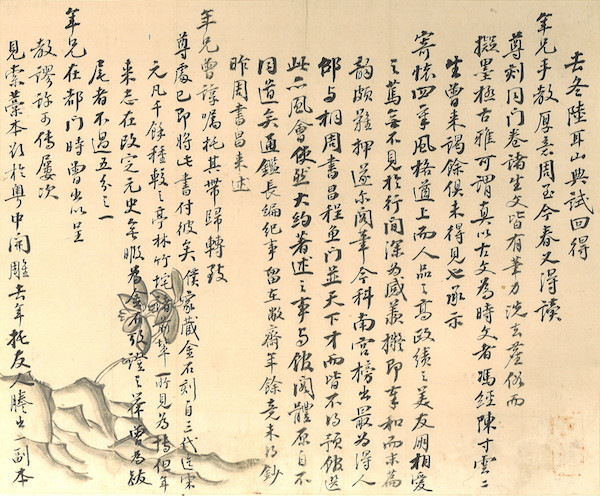 去冬陸耳山典試回得
年兄手教厚意周至今春又得讀
尊刻同門卷諸生文皆有筆力洗去俗而
擬墨極古雅可謂真以古文為時文者馮經陳寸雲二
生曾來謁餘俱未得見也承示
寄懷四章風格遒上而人品之高政績之美友朋相愛
之篤無不見於行間深為感羨擬即奉和而末篇
韵頗難押遂爾閣筆今科南宮榜出最為得人
邵与桐周書昌程魚門並天下才而皆不得預館選
此亦風會使然大約著述之事与館閣體原自不
同道矣通鑑長編紀事留在敝齋年餘竟未得鈔
昨周書昌來述
年兄曾諄囑托其帶歸轉致
尊處已即將此書付彼矣僕家藏金石刻自三代迄宋
元凡千餘種較之亭林竹垞諸前輩所見為博但年
來志在改定元史無暇為金石攷證之業曾為跋
尾者不過五分之一
年兄在都門時曾出以呈
教謬許可傳屢次
見索藁本欲於粵中開雕去年托友人謄出一副本